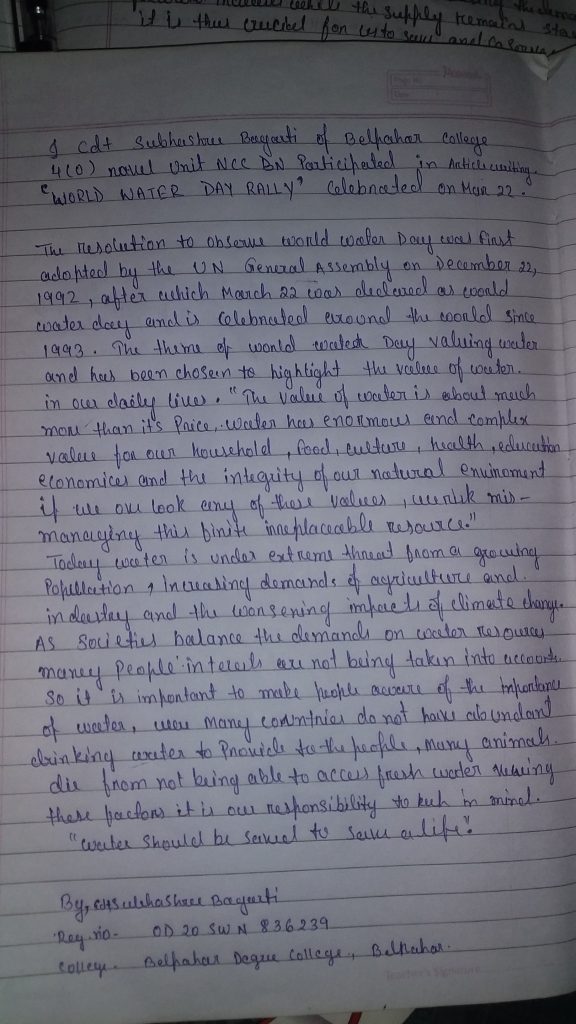 the supply remains sta
it is thus crucibel for us to save and
I Cdt Subhashree Bagarti of Belpahar College
4(0) naval Unit NCC BN Participated in Article writing.
"WORLD WATER DAY RALLY" Celebrated on Mar 22.
The resolution to observe world water Day was first
adopted by the UN General Assembly on December 22,
1992, after which March 22 was declared as world
water day and is Celebrated around the world since
1993. The theme of world water Day valuing water
and has been chosen to highlight the value of water.
in our daily lives. "The value of water is about much
more than it's Price, water has enormous and complex
value for our household, food, culture, health, education
economics and the integrity of our natural enviroment
if we over look any of these values, we risk mis-
managing this finite irreplaceable resource."
Today water is under extreme threat from a growing
Population, increasing demands of agriculture and
industry and the worsening impacts of climate change.
AS Societies balance the demands on water resources
many People interests are not being taken into account.
So it is important to make people aware of the importance
of water, many countries do not have abundant
drinking water to Provide to the people, many animals
die from not being able to access fresh water
these factors it is our responsibility to in mind.
"water should be saved to save a life".
By, cdt Subhashree Bagarti
Reg. no- OD 20 SWN 836239
College- Belpahar Degree College, Belpahar.
Teacher's Signature